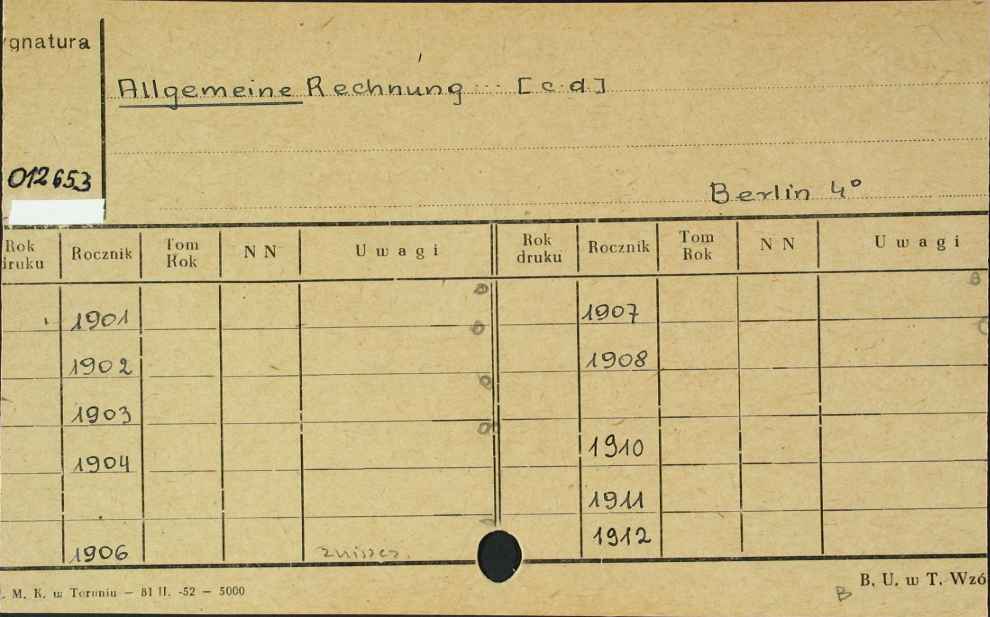 ygnatura
Allgemeine Rechnung ... [c.d]
012653
Berlin 4°
Rok druku Rocznik Tom Rok N N Uwagi Rok druku Rocznik Tom Rok N N Uwagi
1901 1907
1902 1908
1903
1904 1910
1911
1906 1912
. M. K. w Toruniu — 81 II. -52 — 5000
B. U. w T. Wzó
B